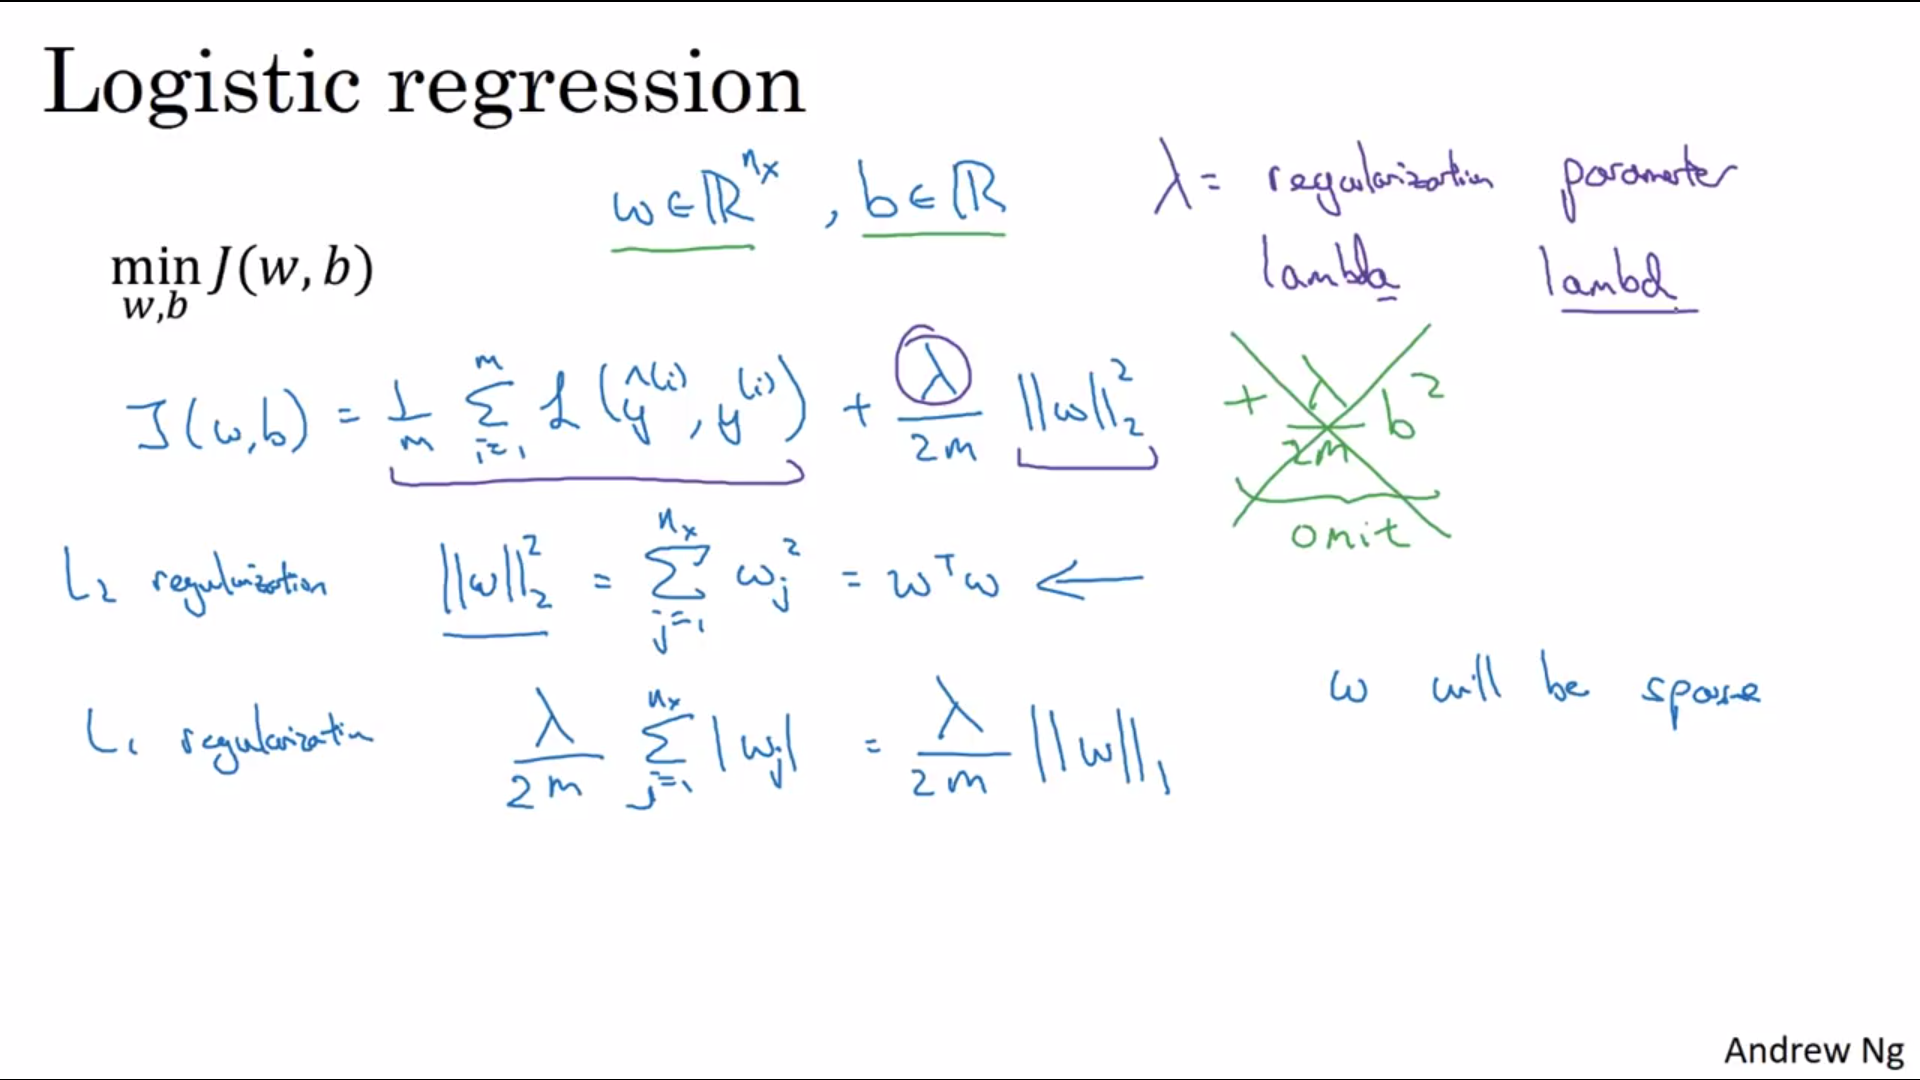 Logistic regression
w ∈ ℝ^{n_x}, b ∈ ℝ
λ = regularization parameter
lambda lambd
min_{w,b} J(w, b)
J(w,b) = 1/m Σ_{i=1}^{m} ℒ(ŷ^{(i)}, y^{(i)}) + λ/2m ||w||_2^2 + λ/2m b^2
omit
L_2 regularization ||w||_2^2 = Σ_{j=1}^{n_x} w_j^2 = w^T w ←
w will be sparse
L_1 regularization λ/2m Σ_{j=1}^{n_x} |w_j| = λ/2m ||w||_1
Andrew Ng